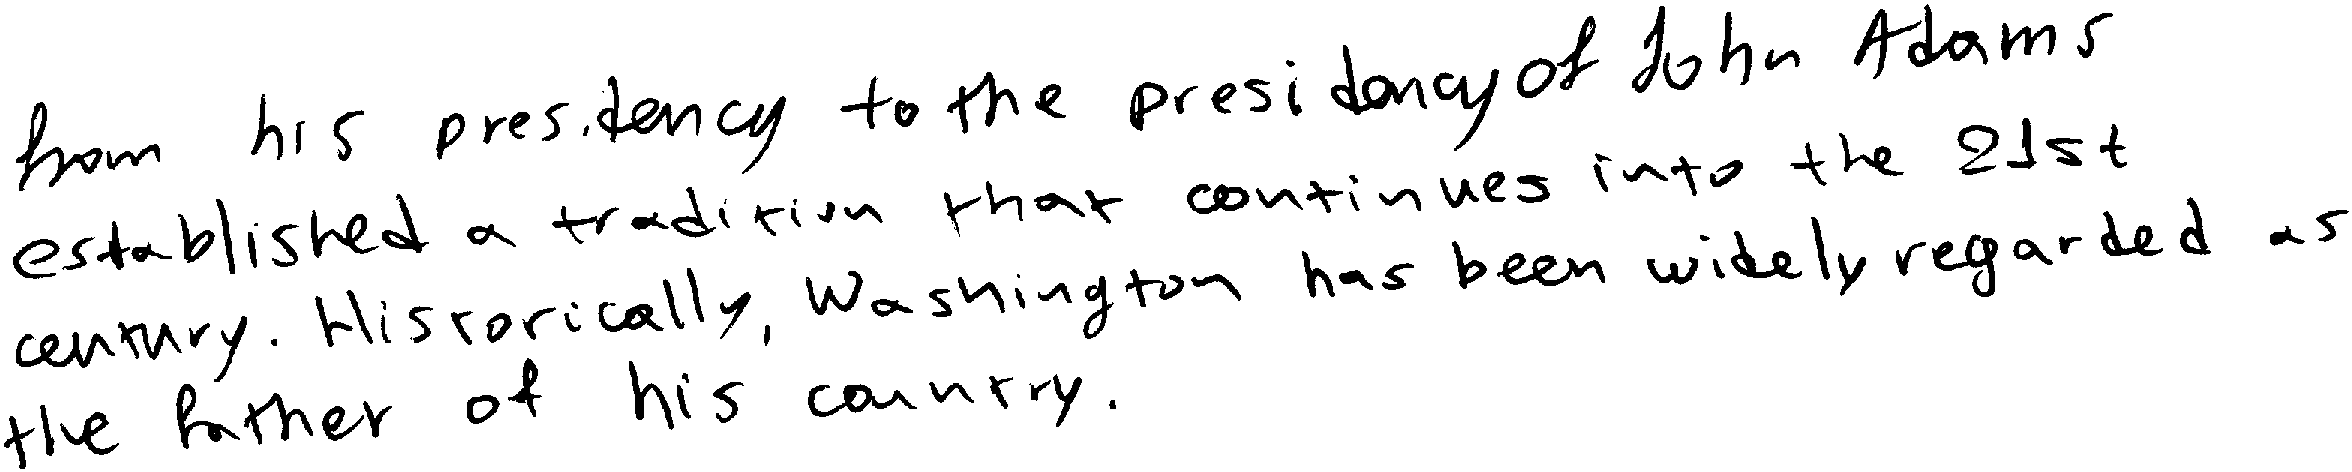 from his presidency to the presidency of John Adams
established a tradition that continues into the 21st
century. Historically, Washington has been widely regarded as
the father of his country.